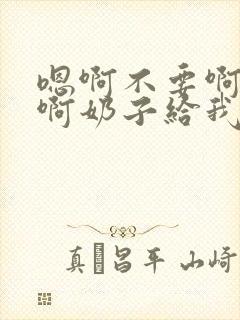 嗯啊不要啊
啊奶子给我
真 昌平 山崎